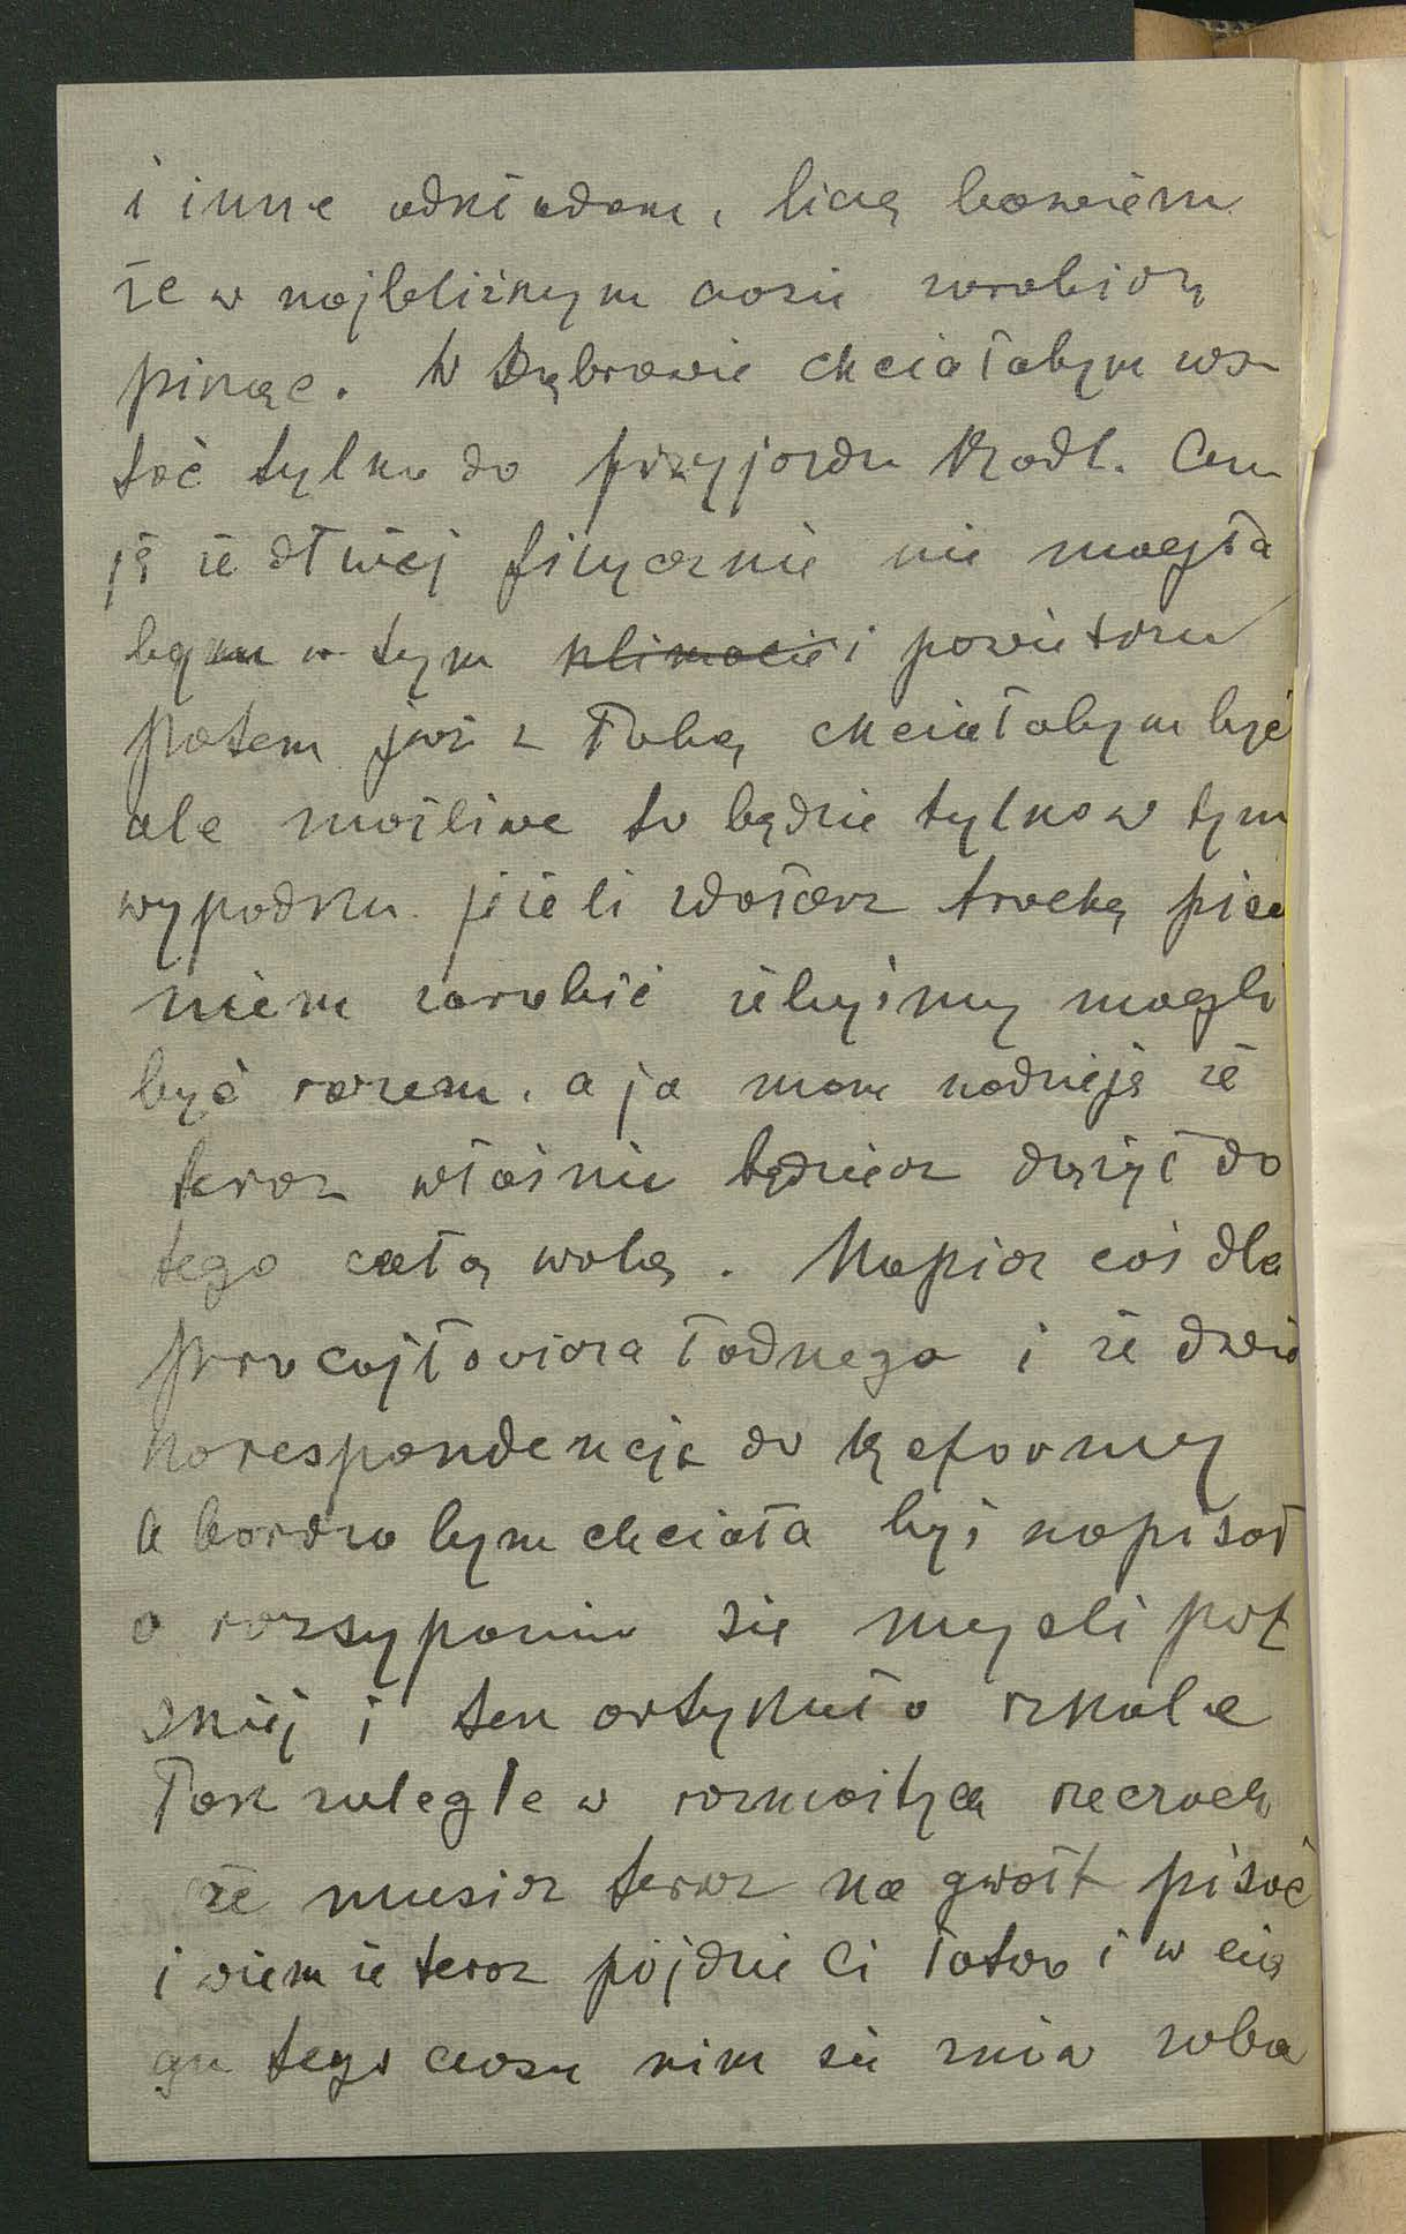 i inne odkładam, liczę bowiem
że w najbliższym czasie zarobisz
pisząc. W Dąbrowie chciałabym zos-
tać tylko do przyjazdu Radl. Czu
ję że dłużej fizycznie nie mogła
bym w tym klimacie i powietrzu
potem już z Tobą chciałabym być
ale możliwe to będzie tylko w tym
wypadku jeżeli zdołasz trochę pisa
niem zarobić żebyśmy mogli
być razem, a ja mam nadzieję że
teraz właśnie będziesz dążył do
tego całą wolą. Napisz coś dla
ładnego i ze dwie
korespondencje do Reformy
A bardzo bym chciała byś napisał
o rozsypaniu się myśli póź
niej i ten artykuł o szkole
Tak zaległe w rozmaitych rzeczach
że musisz teraz na gwałt pisać
i wiem że teraz pójdzie Ci łatwo i w cią
gu tego czasu nim się znów zoba